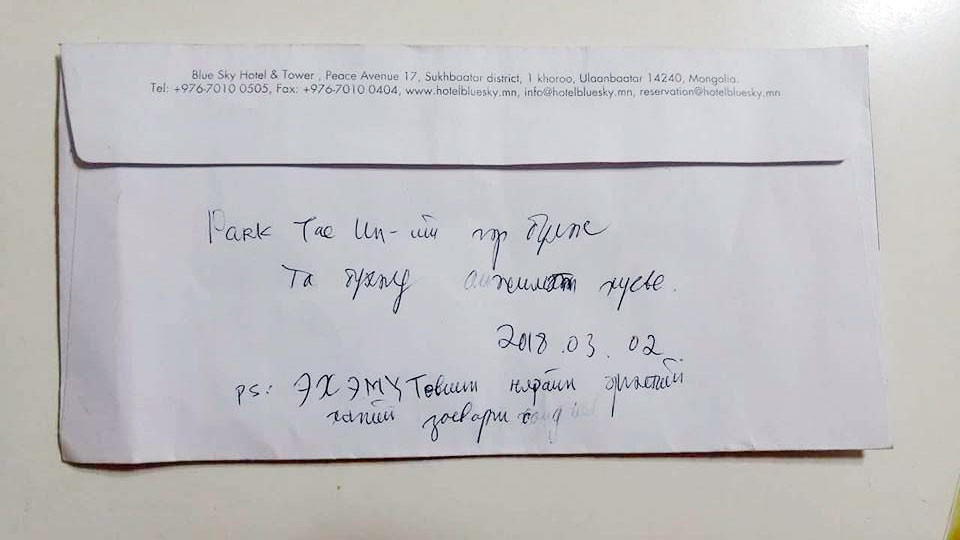 Blue Sky Hotel & Tower , Peace Avenue 17, Sukhbaatar district, 1 khoroo, Ulaanbaatar 14240, Mongolia.
Tel: +976-7010 0505, Fax: +976-7010 0404, www.hotelbluesky.mn, info@hotelbluesky.mn, reservation@hotelbluesky.mn
Park Tae Un-ий гэр бүлээс
Та бүхэнд амжилт хүсье.
2018.03.02.
ps: ЭХЭМҮТөвийн нярайн
засварын